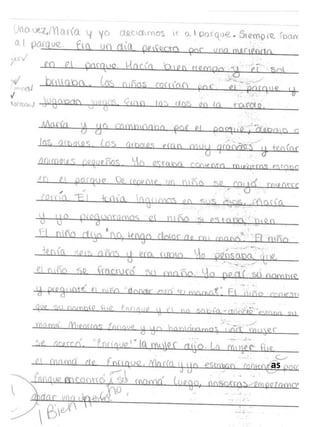 Una vez, María y yo decidimos ir al parque. Siempre iban
al parque. Era un día perfecto por una merienda
en el parque. Hacía buen tiempo y el sol
brillaba. Los niños corrían por el parque y
jugaban juegos. Eran las dos en la tarde.
María y yo caminaba por el parque, debajo
los arboles. Los arboles eran muy grandes y tenían
animales pequeños. Yo estaba contenta mientras
en el parque. De repente, un niño se cayó mientras
corría. El tenía lagrimas en sus ojos. María
y yo preguntamos el niño si estaba bien
El niño dijo "no, tengo dolor de mi mano". El niño
tenía seis años y era rubio. Yo pensaba que
el niño se fracturó su maño. Yo pedí su nombre
y pregunté el niño "donde está su mama?". El niño
que su nombre fue Enrique y él no sabía donde estaba su
mamá. Mientras Enrique y yo una mujer
se acercó. "Enrique!" la mujer dijo. La mujer fue
el mamá de Enrique. María y yo estaban contentas
Enrique encontró a su mamá. Luego, nosotras
¡Bien hecho!